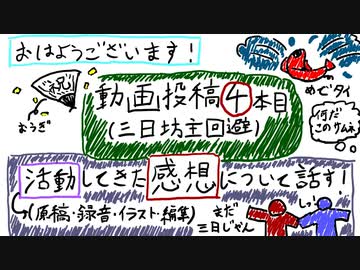 おはようございます！
祝
おうぎ
動画投稿4本目
(三日坊主回避)
めでタイ
何だ
このサムネ
活動してきた感想について話す！
(原稿・録音・イラスト・編集)
まだ
三日じゃん
しっ！